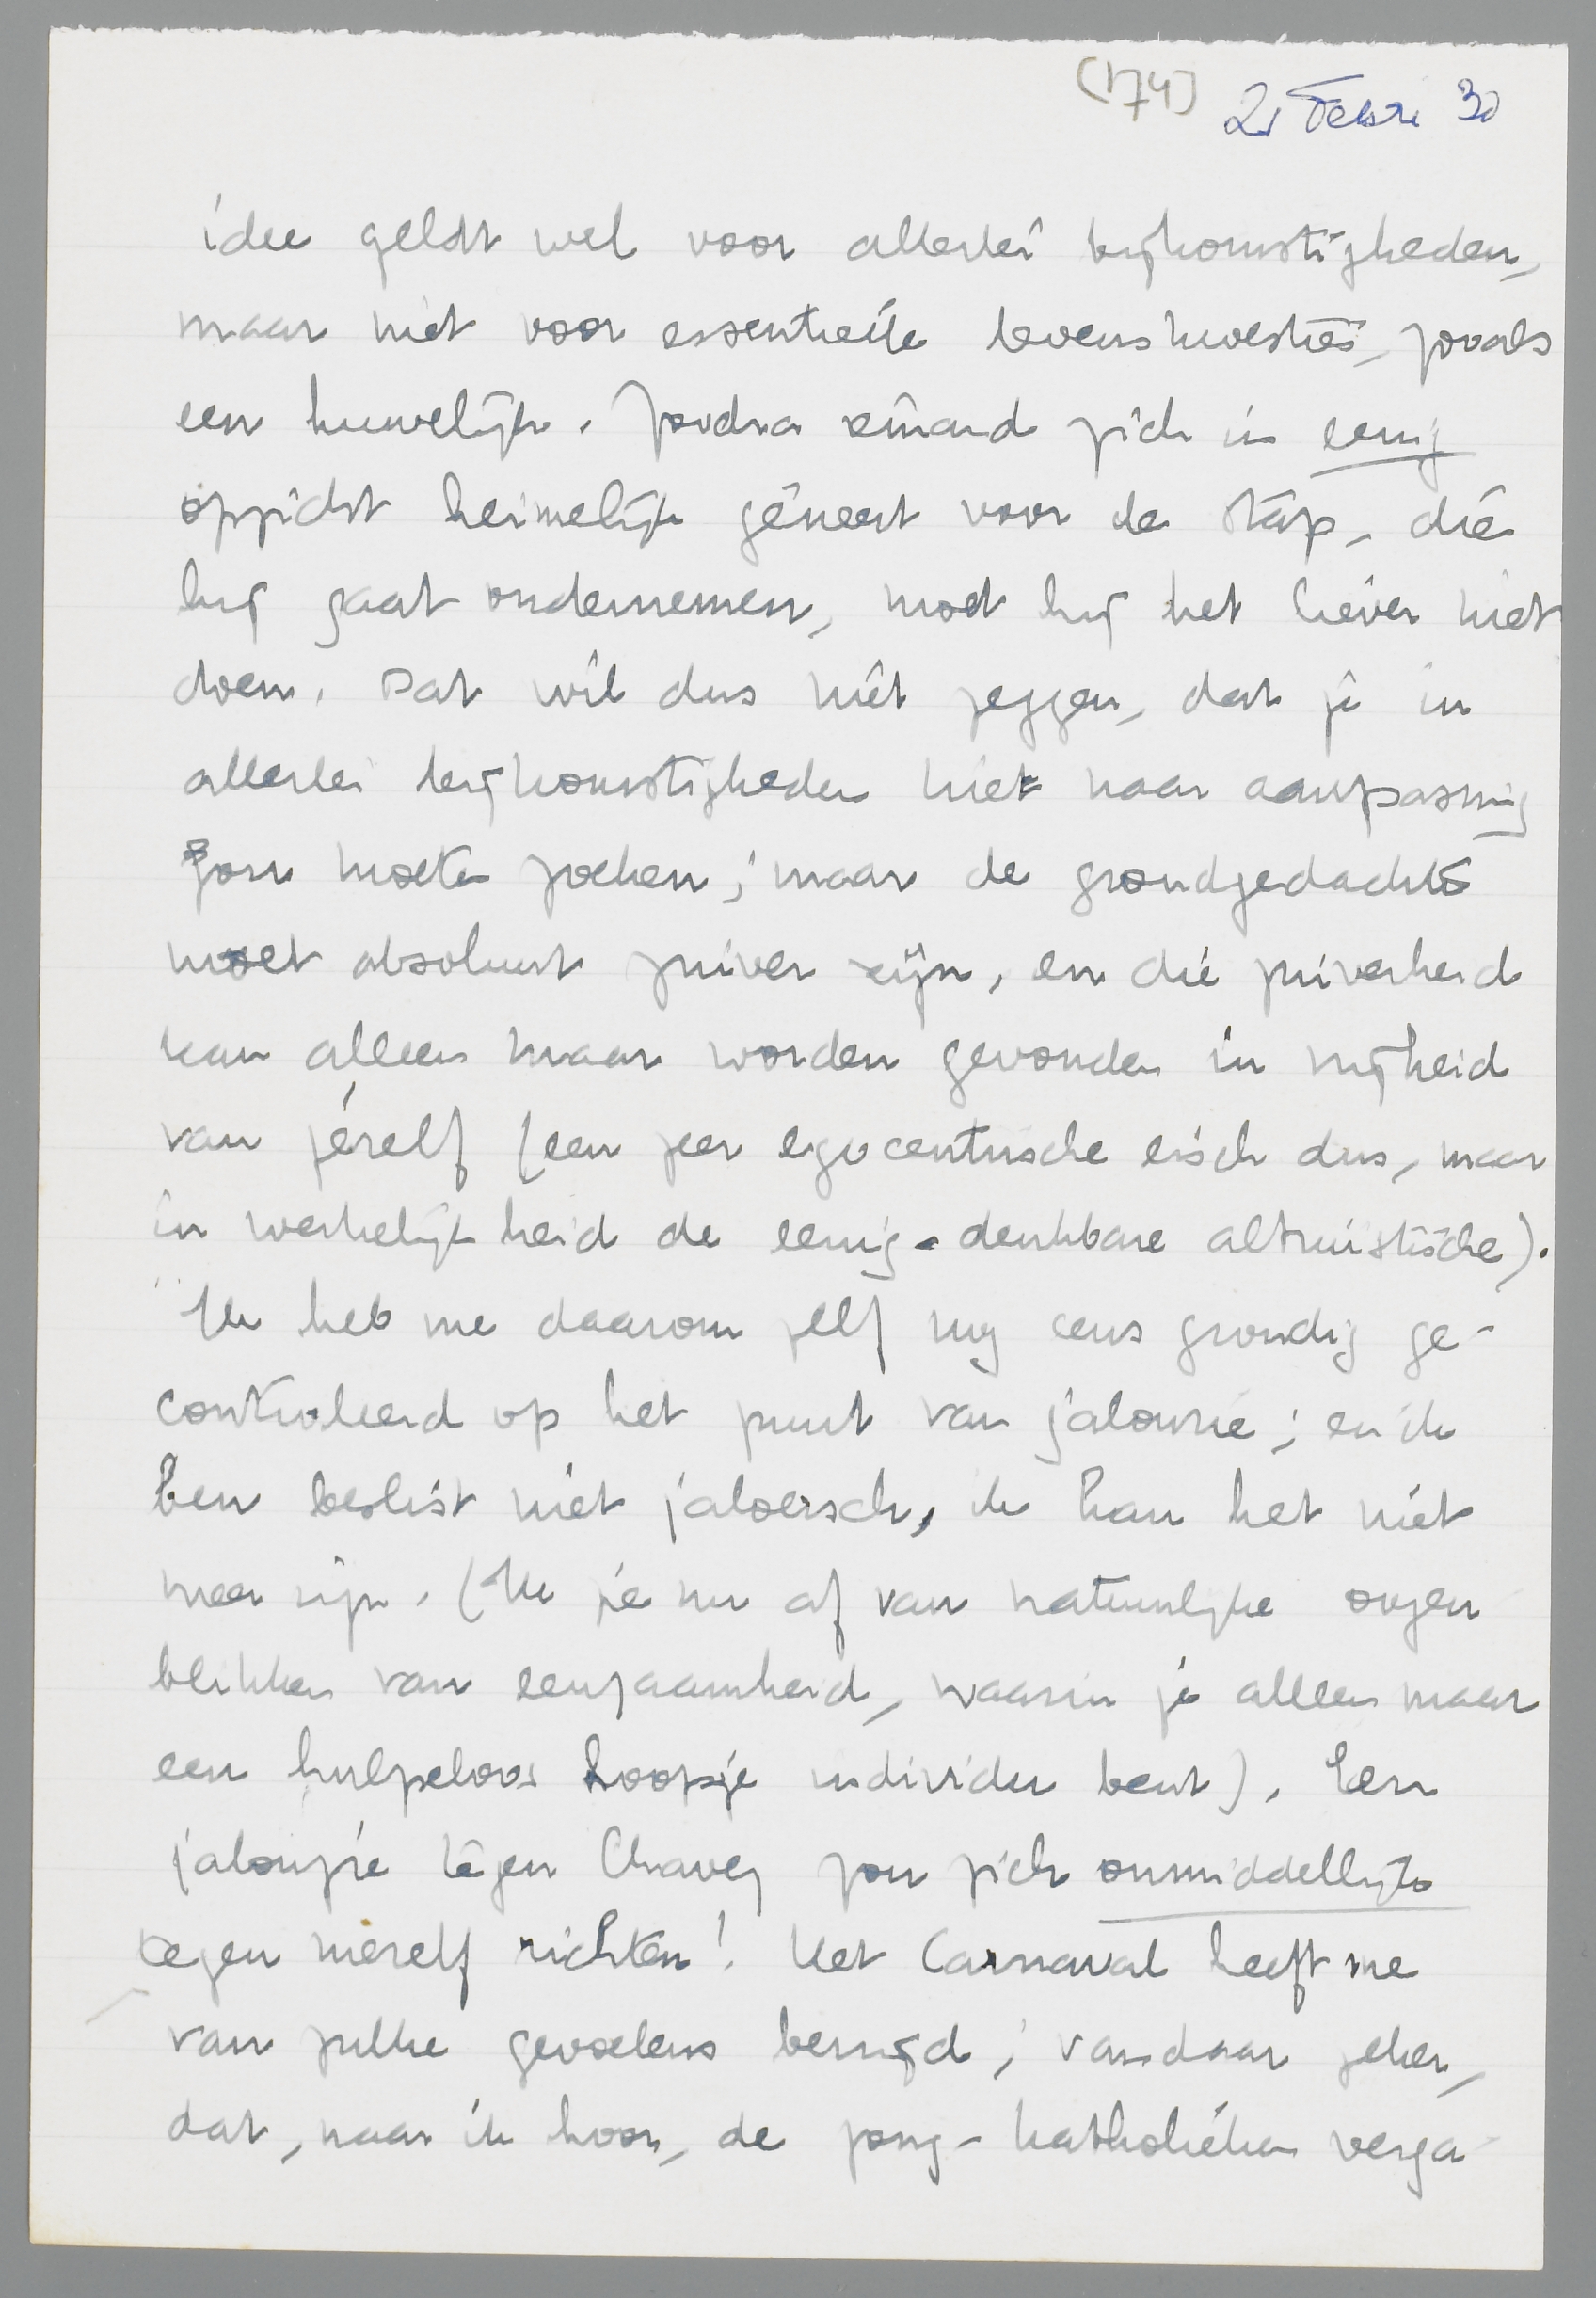 (174) 21 Febr. 30
idee geldt wel voor allerlei bijkomstigheden,
maar niet voor essentieële levenskwesties, zooals
een huwelijk. Zoodra iemand zich in eenig
opzicht heimelijk gêneert voor de stap, die
hij gaat ondernemen, moet hij het liever niet
doen. Dat wil dus niet zeggen, dat je in
allerlei bijkomstigheden niet naar aanpassing
zou moeten zoeken; maar de grondgedachte
moet absoluut zuiver zijn, en die zuiverheid
kan alleen maar worden gevonden in vrijheid
van jezelf (een zeer egocentrische eisch dus, maar
in werkelijkheid de eenig-denkbare altruistische).
Ik heb me daarom zelf nog eens grondig ge-
controleerd op het punt van jalouzie; en ik
ben beslist niet jaloersch, ik kan het niet
meer zijn. (Ik zie nu af van natuurlijke oogen
blikken van eenzaamheid, waarin je alleen maar
een hulpeloos hoopje individu bent). Een
jalouzie tegen Chavez zou zich onmiddellijk
tegen mezelf richten! Het Carnaval heeft me
van zulke gevoelens bevrijd; vandaar zeker,
dat, naar ik hoor, de jong-katholieken verga-